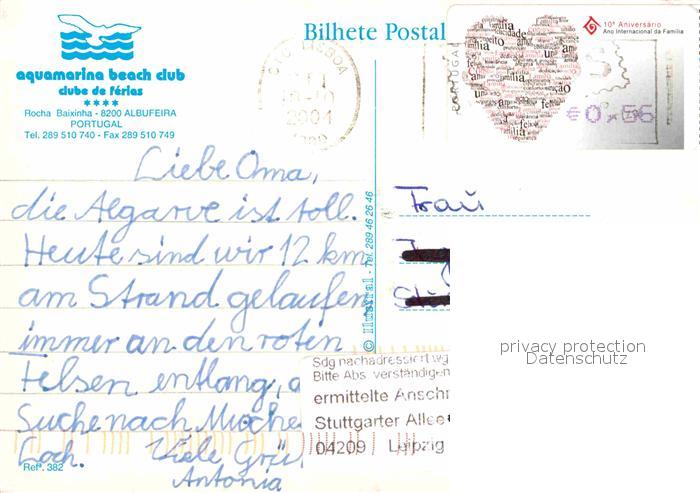 aquamarina beach club
clube de férias
★★★★
Rocha Baixinha - 8200 ALBUFEIRA
PORTUGAL
Tel. 289 510 740 - Fax 289 510 749
Bilhete Postal
LISBOA
2004
PORTUGAL
10º Aniversário
Ano Internacional da Família
€0,56
Liebe Oma,
die Algarve ist toll.
Heute sind wir 12 km
am Strand gelaufen
immer an den roten
Felsen entlang,
Suche nach
Loch. Viele Grü
Antonia
Refª. 382
© Ilustral - Tel. 289 46 26 46
Frau
Sdg nachadressiert wg
Bitte Abs verständigen
ermittelte Anschr
Stuttgarter Allee
04209 Leipzig
privacy protection
Datenschutz